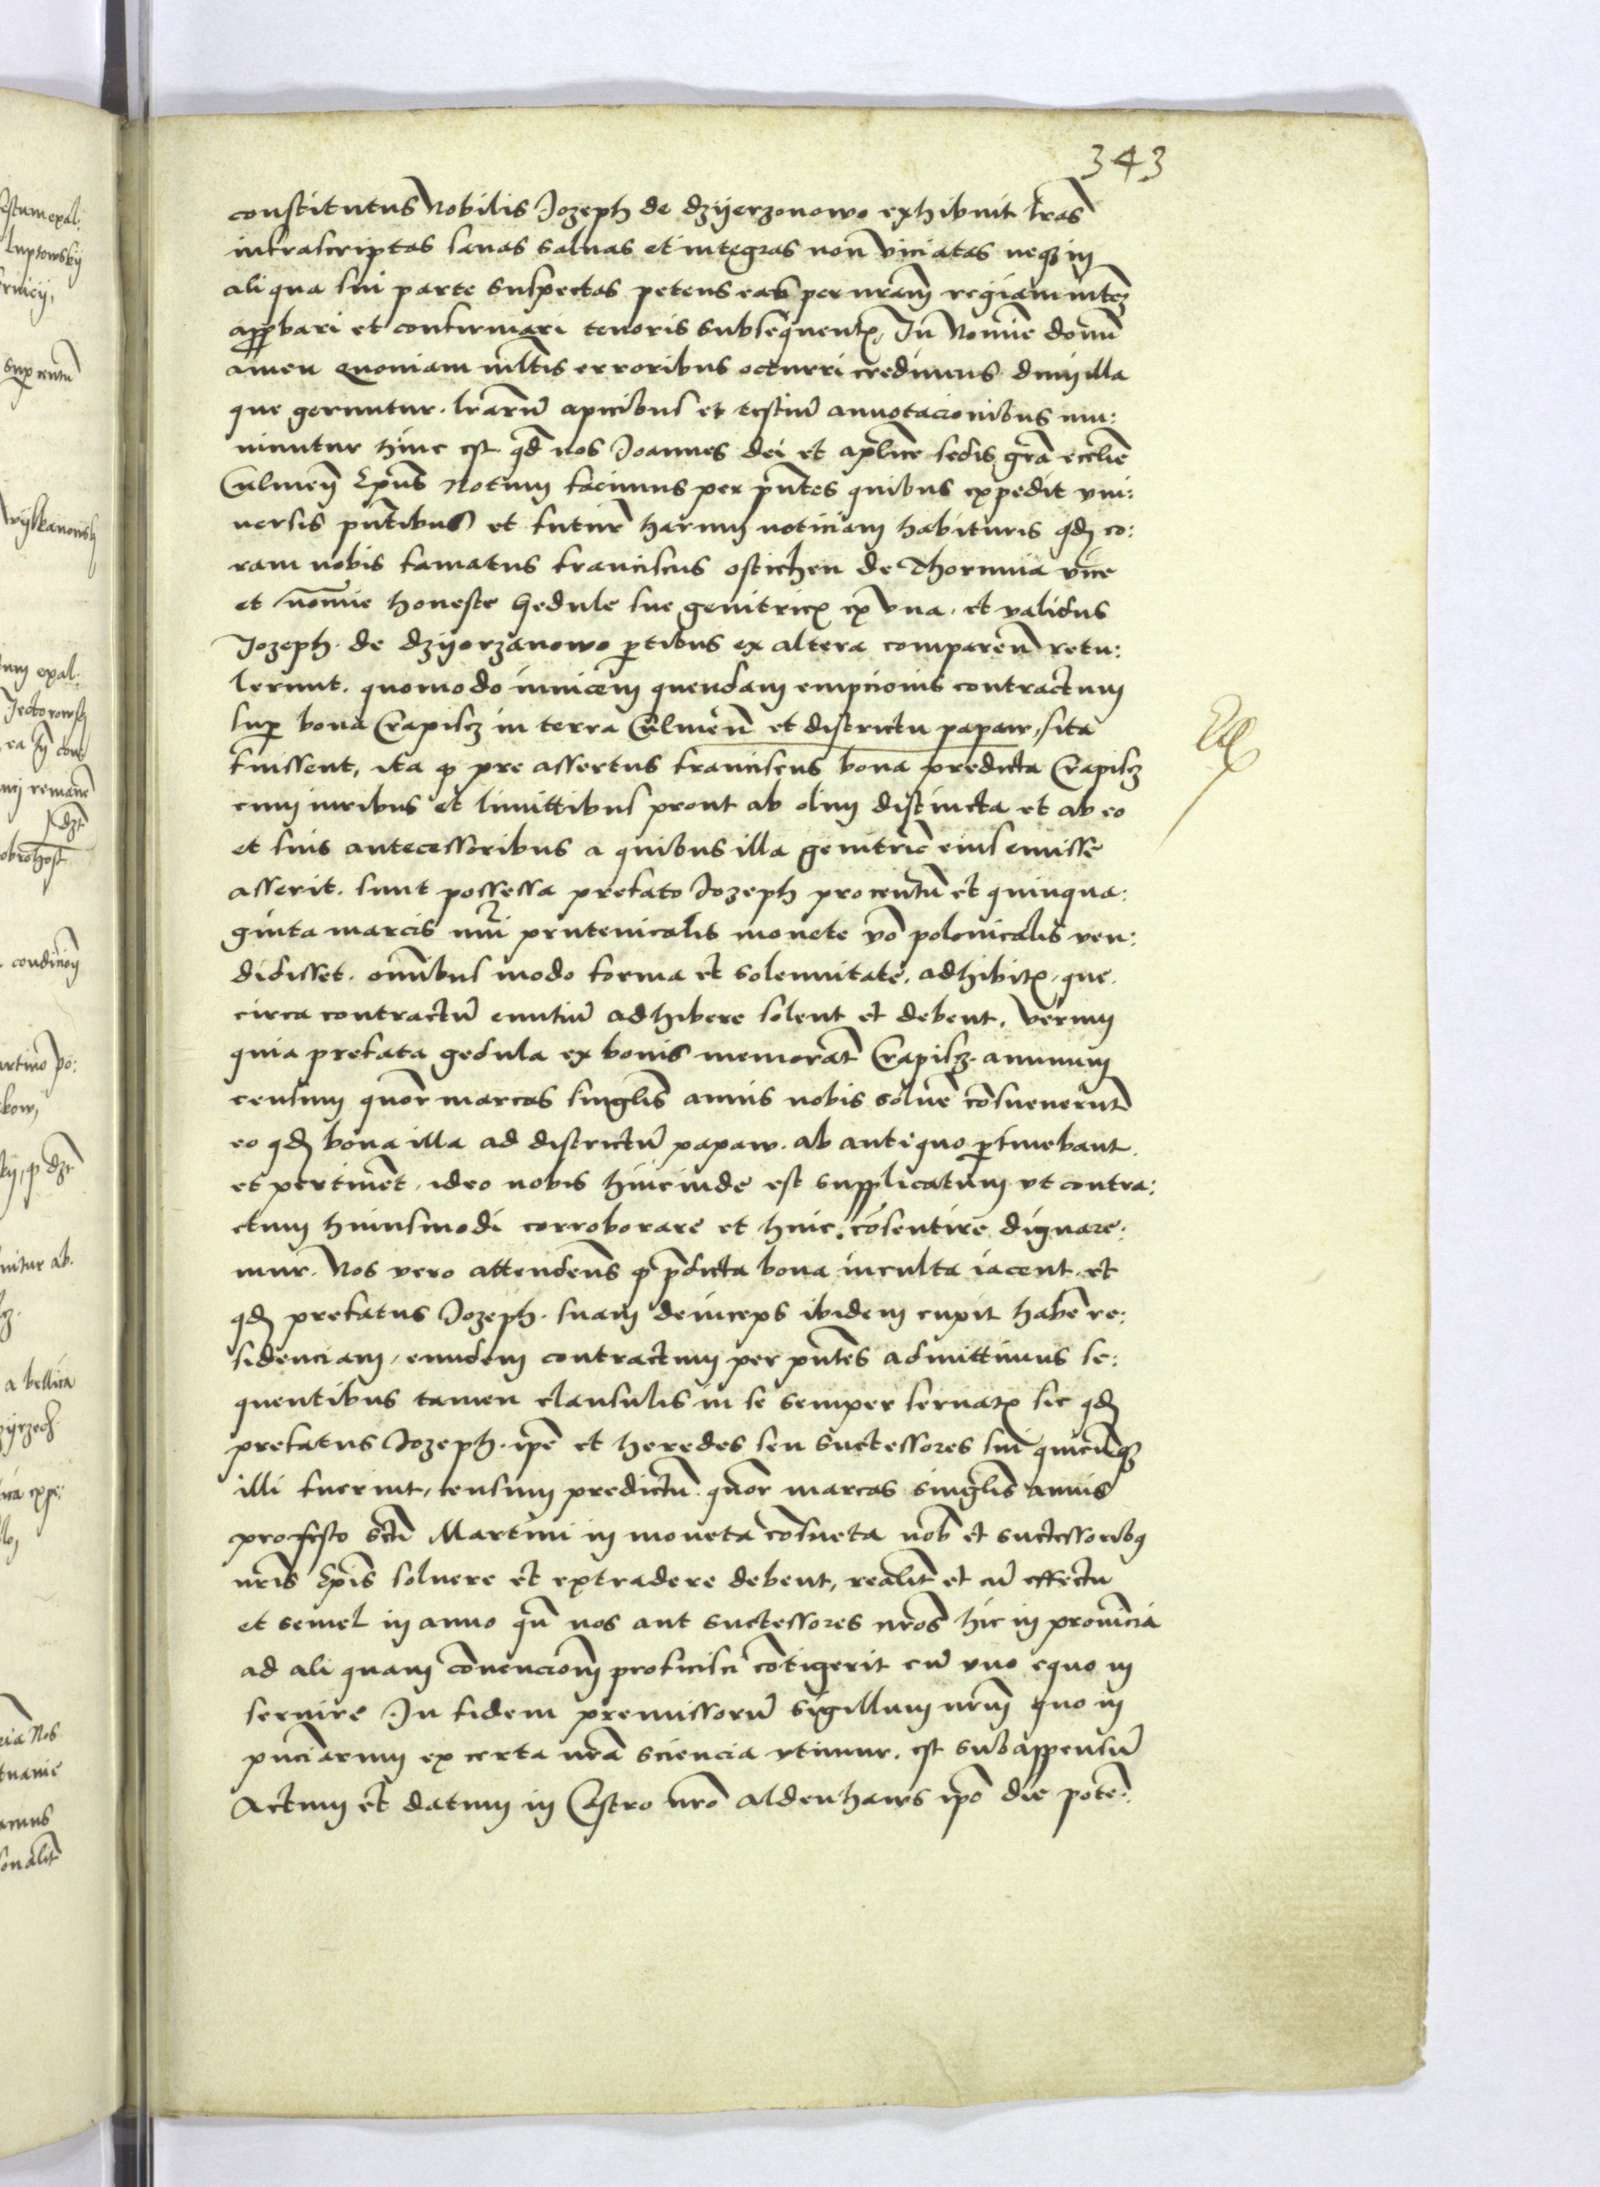 343
constitutus Nobilis Jozeph de dzyerzonowo exhibuit lras
infrascriptas sanas saluas et integras non viciatas neq3 in
ali qua sui parte suspectas petens eas per nram regiam mtem
approbari et confirmari tenoris subsequentis, In Nomine domini
amen Quoniam multis erroribus occurri credimus dum illa
que geruntur. lrarum apicibus et testium annotacionibus mu:
niuntur hinc est qd nos Joannes dei et aplice sedis gra ecclie
Culmen Epus Notum facimus per pntes quibus expedit vni:
uersis pntibus et futur harum noticiam habituris qd co:
ram nobis famatus franciscus ostichen de Thorunia vice
et nomine honeste Hedule sue genitricis ex vna. et validus
Jozeph. de dzyorzanowo ptibus ex altera comparen retu:
lerunt. quomodo inuicem quendam empcionis contractum
sup bona Crapisz in terra Culmen et districtu papaw, sita
fuissent, ita q pre assertus franciscus bona predicta Crapisz
cum iuribus et limittibus prout ab olim distincta et ab eo
et suis antecessoribus a quibus illa genitric eius emisse
asserit. sunt possessa prefato Jozeph pro centum et quinqua:
ginta marcis nri prutenicalis monete vo polonicalis ven:
didisset. omnibus modo forma et solemnitate. adhibitis. que
circa contractum emtium adhibere solent et debent. Verum
quia prefata gedula ex bonis memorat Crapisz. annuum
censum quor marcas singlis annis nobis soluere consueuerunt
eo qd bona illa ad districtum papaw. ab antiquo ptinebant.
et pertinet. ideo nobis hincinde est supplicatum vt contra:
ctum huiusmodi corroborare et huic. cosentire dignare:
mur. Nos vero attendens q pdicta bona inculta iacent. et
qd prefatus Jozeph. suam deinceps ibidem cupit habere re:
sidenciam, eundem contractum per pntes admittimus se:
quentibus tamen clausulis in se semper seruatis sic qd
prefatus Jozeph. ipe et heredes seu successores sui quicunq3
illi fuerint, censum predictum quor marcas singlis annis
pro festo scti Martini in moneta cosueta nob et successoribus
nris Epis soluere et extradere debent, realit et cum effectu
et semel in anno qn nos aut successores nros hic in prouincia
ad ali quam conuencionem proficisci cotigerit cum vno equo in
seruire. In fidem premissorum sigillum nrum quo in
punciarum ex certa nra sciencia vtimur. est subappensum
Actum et datum in Castro nro aldenhaws ipo die pote: